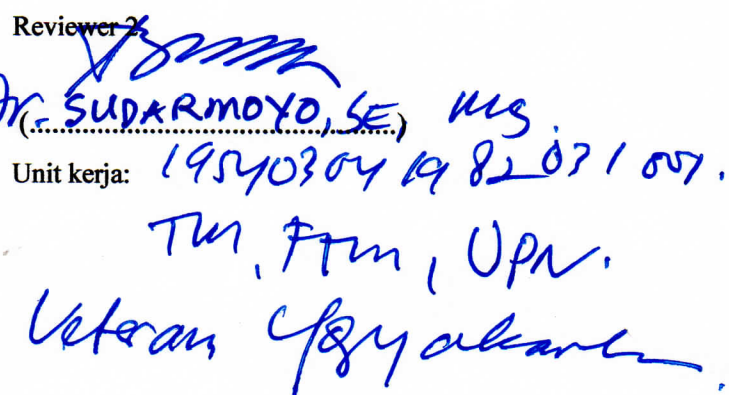 Reviewer 2
Ir. SUDARMOYO, SE, MS.
Unit kerja: 19540304 1982 03 1 001.
TM, FTM, UPN.
Veteran Yogyakarta.